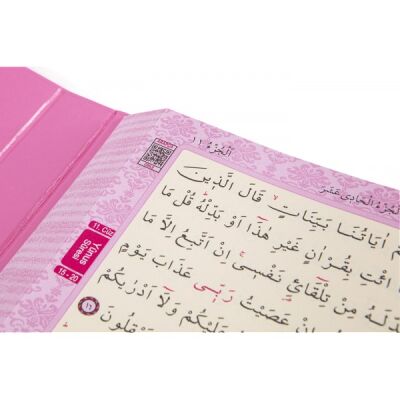 اَلْجُزْءُ ١١
اَلْجُزْءُ الْحَادِي عَشَرَ
11. Cüz
Yûnus
Sûresi
15 - 20
اٰيَاتُنَا بَيِّنَاتٍ قَالَ الَّذِينَ
ائْتِ بِقُرْاٰنٍ غَيْرِ هٰذَا اَوْ بَدِّلْهُ قُلْ مَا
مِنْ تِلْقَائِ نَفْسِي اِنْ اَتَّبِعُ اِلَّا مَا
عَصَيْتُ رَبِّي عَذَابَ يَوْمٍ
عَلَيْكُمْ وَلَا اَدْرٰيكُمْ